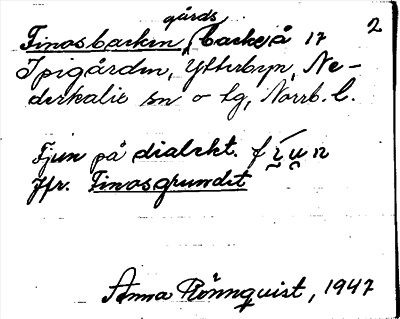 gårds
Finosbacken, backe, å 17 2
Spigården, Ytterbyn, Ne-
derkalix sn o tg, Norrb. l.
Fjun på dialekt. fiun
Jfr. Finosgrundet
Anna Rönnquist, 1947